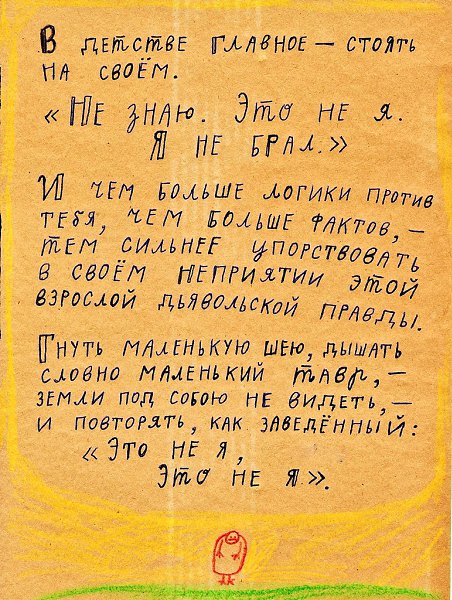 В детстве главное — стоять
на своём.
«Не знаю. Это не я.
Я не брал.»
И чем больше логики против
тебя, чем больше фактов, —
тем сильнее упорствовать
в своём неприятии этой
взрослой дьявольской правды.
Гнуть маленькую шею, дышать
словно маленький тавр, —
земли под собою не видеть, —
и повторять, как заведённый:
«Это не я,
Это не я».